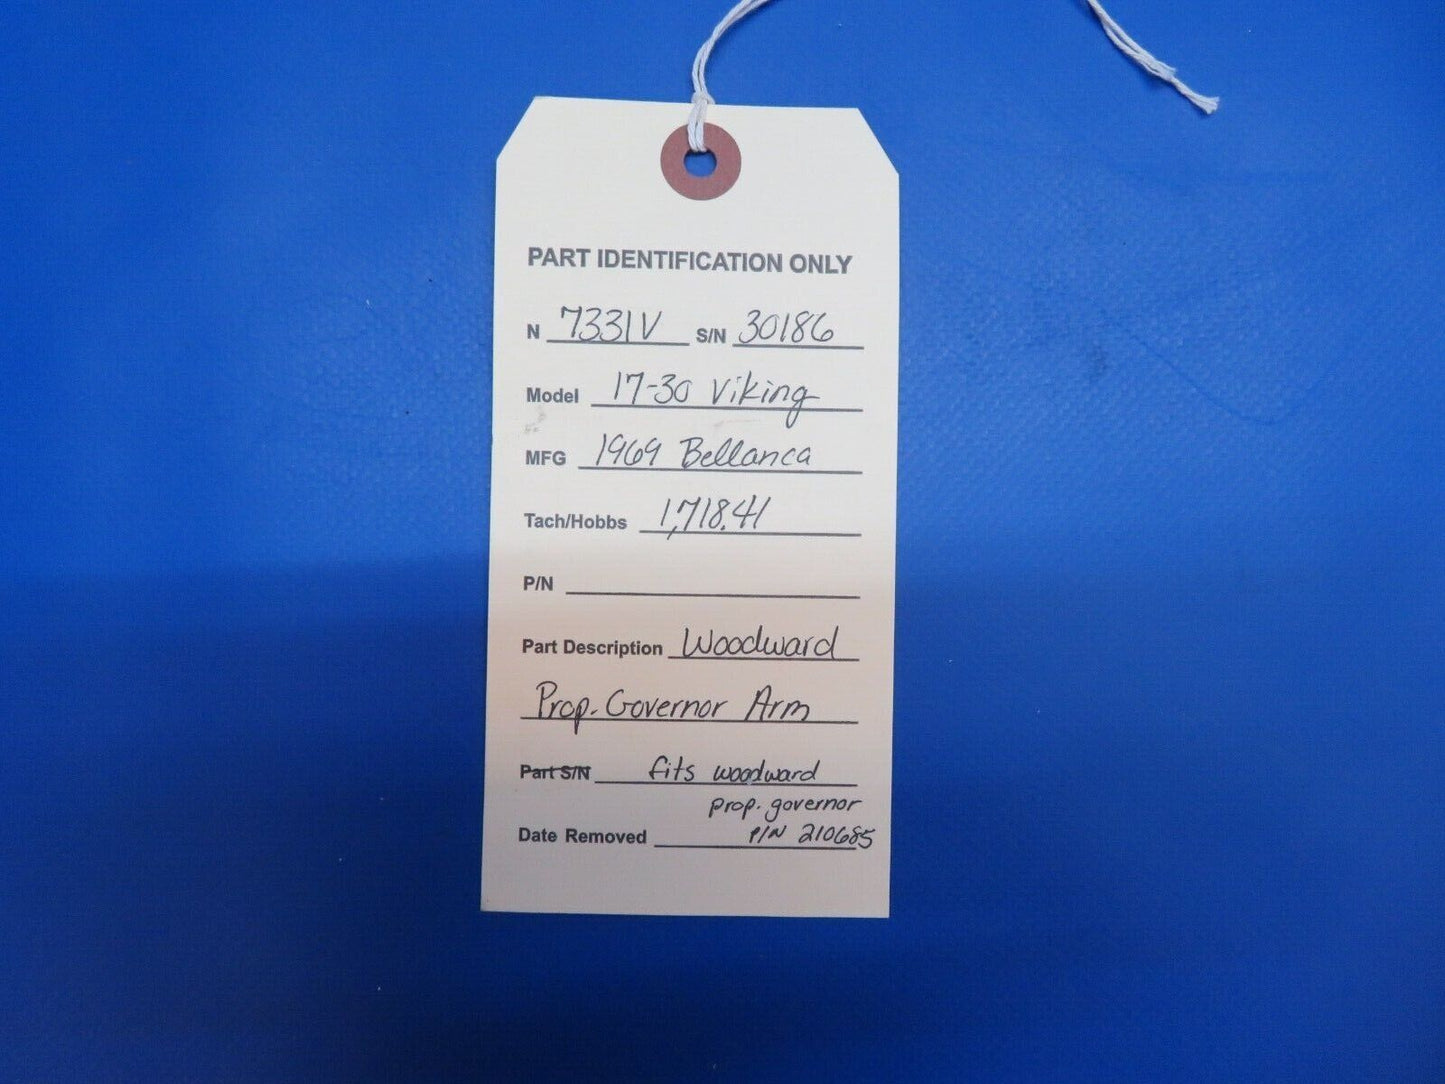 PART IDENTIFICATION ONLY
N 7331V S/N 30186
Model 17-30 Viking
MFG 1969 Bellanca
Tach/Hobbs 1,718.41
P/N
Part Description Woodward
Prop. Governor Arm
Part S/N fits woodward
prop. governor
Date Removed P/N 210685